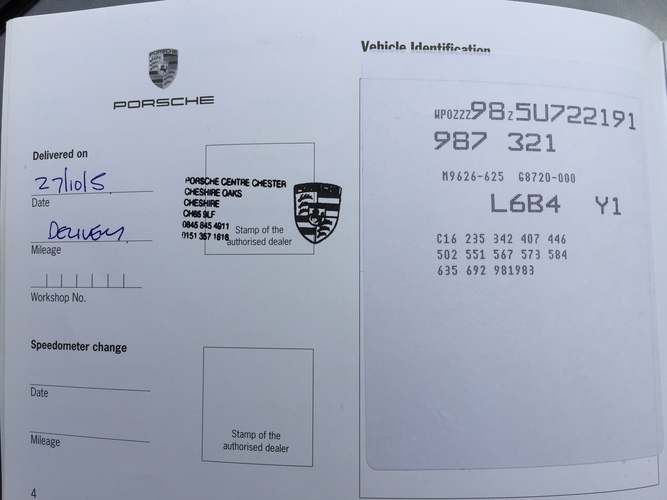 PORSCHE
PORSCHE
Delivered on
27/10/5
Date
DELIVERY
Mileage
Workshop No.
PORSCHE CENTRE CHESTER
CHESHIRE OAKS
CHESHIRE
CH65 9LF
0845 845 4911
0151 357 1616
Stamp of the
authorised dealer
Speedometer change
Date
Mileage
Stamp of the
authorised dealer
4
Vehicle Identification
WPOZZZ98Z5U722191
987 321
M9626-625 G8720-000
L6B4 Y1
C16 235 342 407 446
502 551 567 573 584
635 692 981983